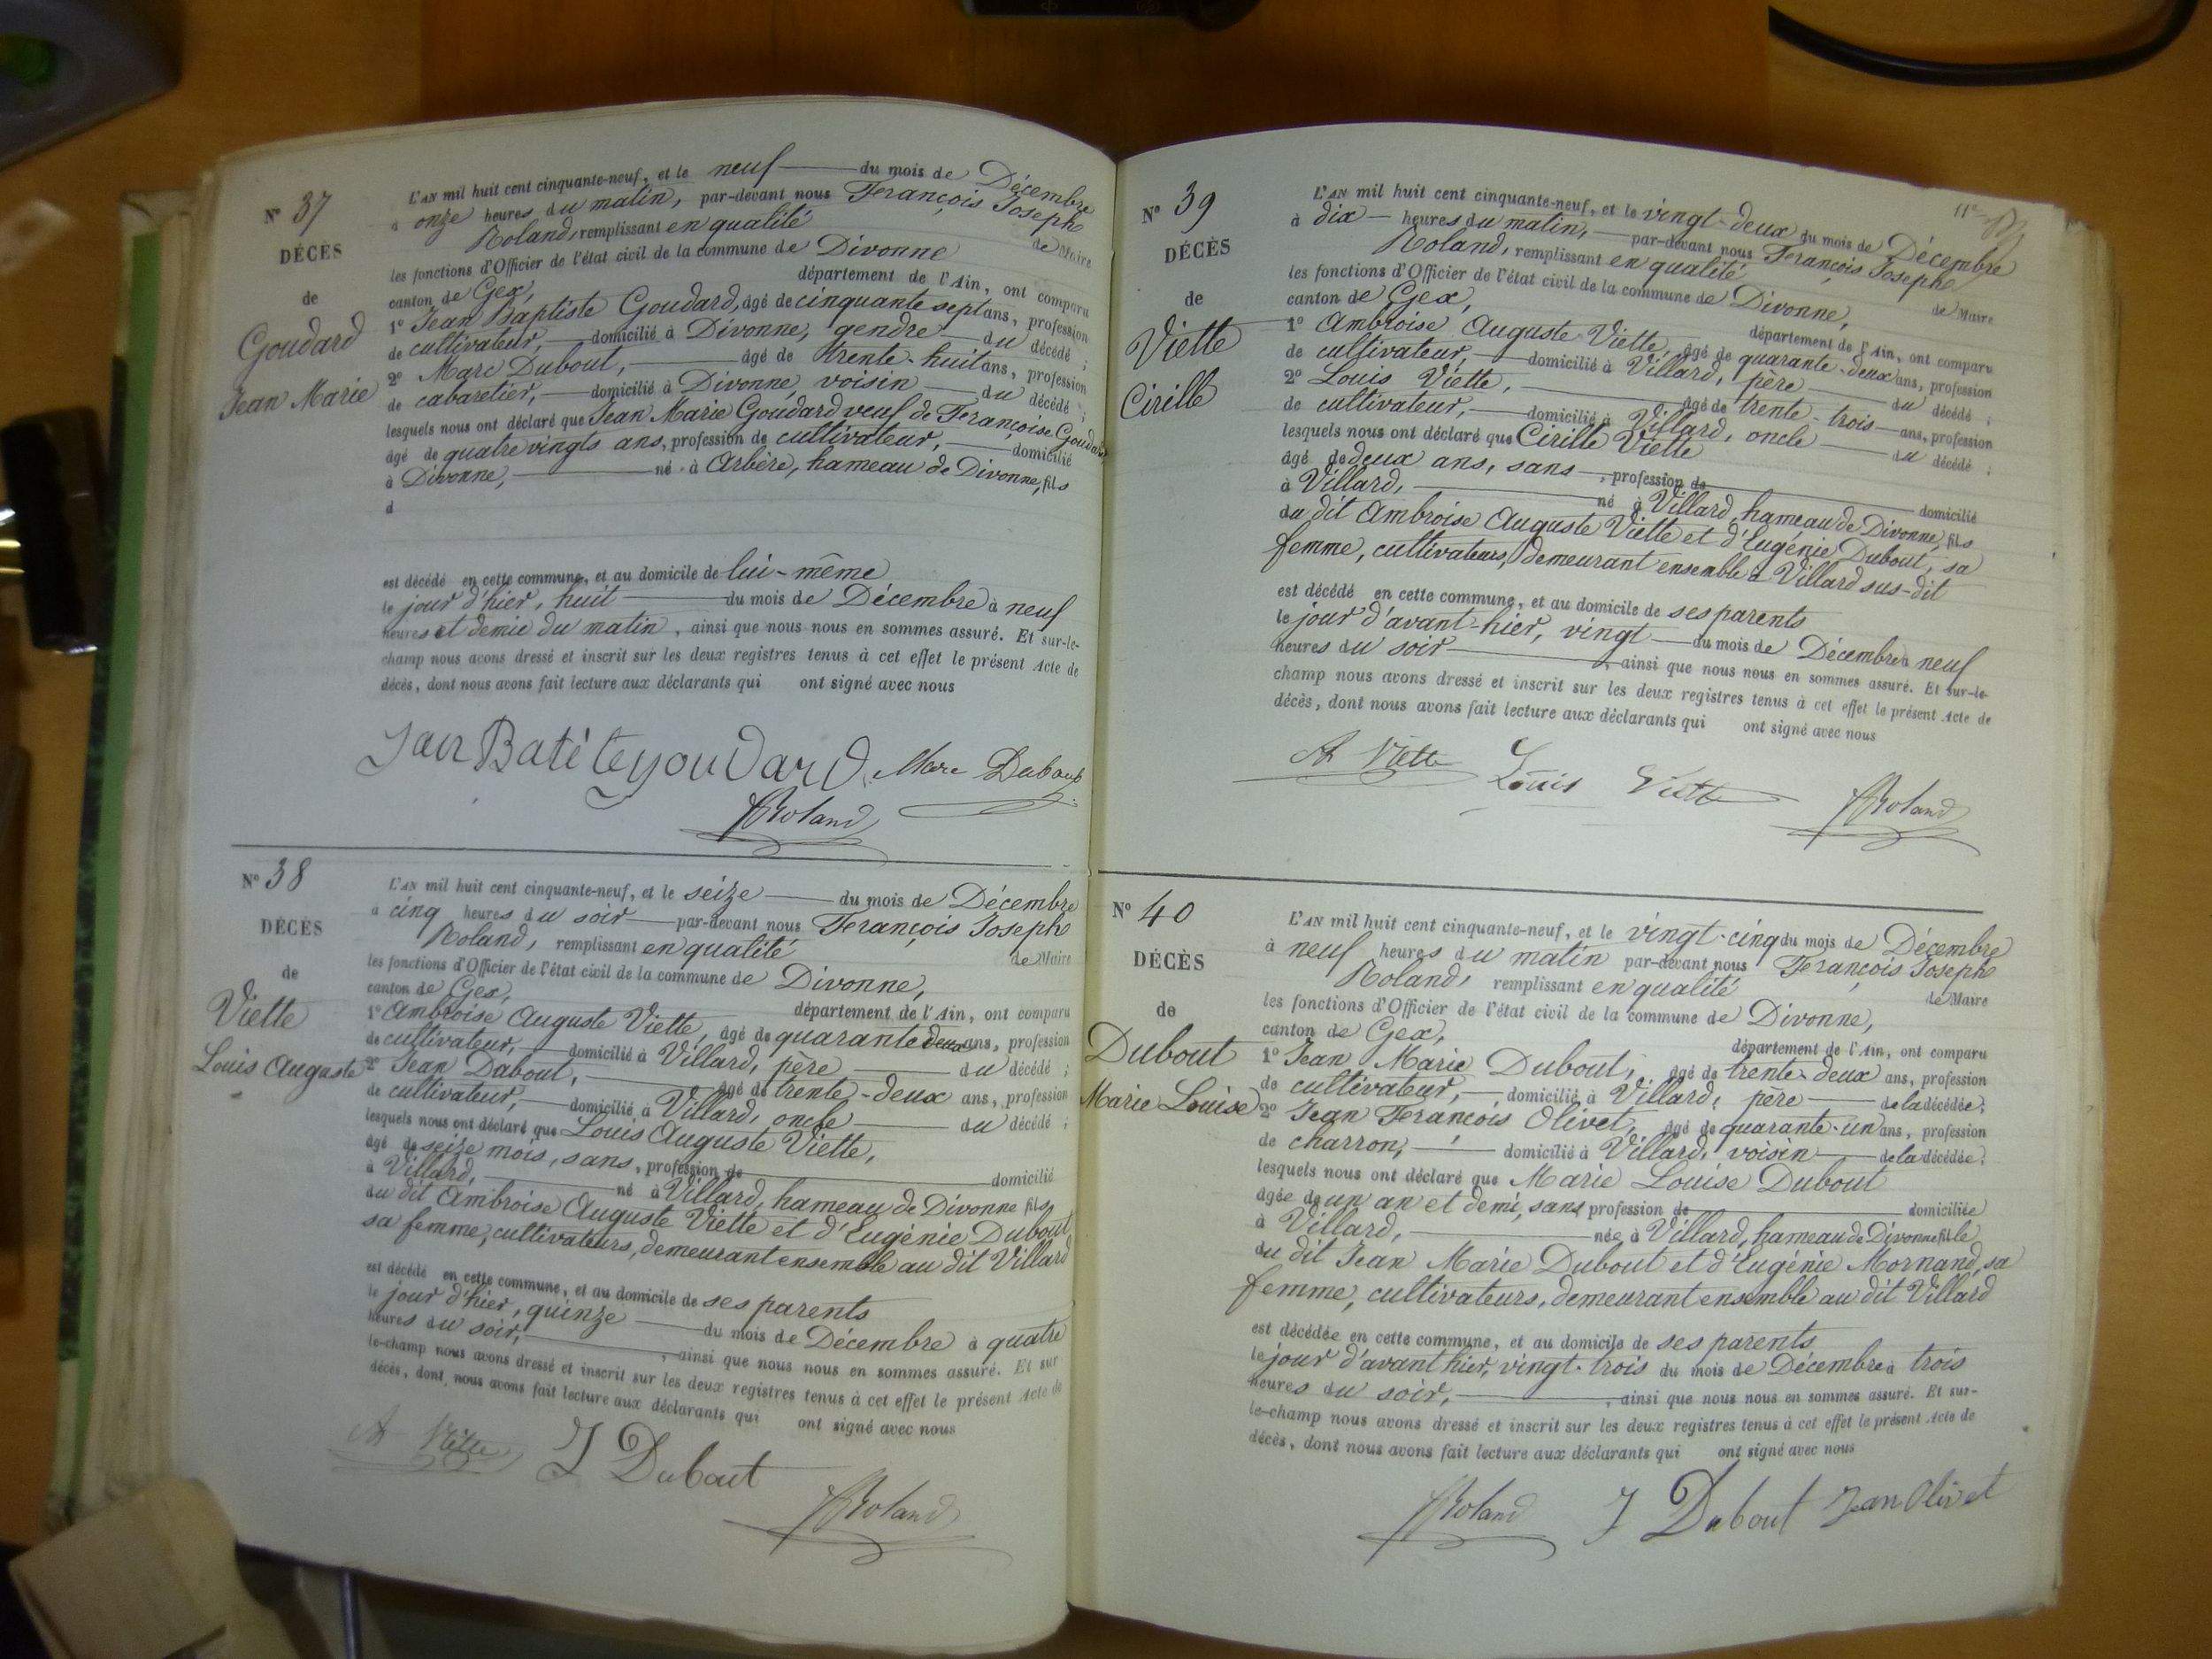 N° 37
DÉCÈS
de
Goudard
Jean Marie
L'AN mil huit cent cinquante-neuf, et le neuf du mois de Décembre
à onze heures du matin, par-devant nous François Joseph
Roland, remplissant en qualité de Maire
les fonctions d'Officier de l'état civil de la commune de Divonne
canton de Gex, département de l'Ain, ont comparu
1° Jean Baptiste Goudard, âgé de cinquante sept ans, profession
de cultivateur, domicilié à Divonne, gendre du décédé ;
2° Marc Dubout, âgé de trente-huit ans, profession
de cabaretier, domicilié à Divonne, voisin du décédé ;
lesquels nous ont déclaré que Jean Marie Goudard veuf de Françoise Goudard
âgé de quatre vingts ans, profession de cultivateur, domicilié
à Divonne, né à Arbère, hameau de Divonne, fils
d
est décédé en cette commune, et au domicile de lui-même
le jour d'hier, huit du mois de Décembre à neuf
heures et demie du matin, ainsi que nous nous en sommes assuré. Et sur-le-
champ nous avons dressé et inscrit sur les deux registres tenus à cet effet le présent Acte de
décès, dont nous avons fait lecture aux déclarants qui ont signé avec nous
Marc Dubout
Roland
N° 38
DÉCÈS
de
Viette
Louis Auguste
L'AN mil huit cent cinquante-neuf, et le seize du mois de Décembre
à cinq heures du soir par-devant nous François Joseph
Roland, remplissant en qualité de Maire
les fonctions d'Officier de l'état civil de la commune de Divonne,
canton de Gex, département de l'Ain, ont comparu
1° Ambroise Auguste Viette, âgé de quarante deux ans, profession
de cultivateur, domicilié à Villard, père du décédé ;
2° Jean Dubout, âgé de trente-deux ans, profession
de cultivateur, domicilié à Villard, oncle du décédé ;
lesquels nous ont déclaré que Louis Auguste Viette,
âgé de seize mois, sans, profession de domicilié
à Villard, né à Villard, hameau de Divonne fils
du dit Ambroise Auguste Viette et d'Eugénie Dubout
sa femme, cultivateurs, demeurant ensemble au dit Villard
est décédé en cette commune, et au domicile de ses parents
le jour d'hier, quinze du mois de Décembre à quatre
heures du soir, ainsi que nous nous en sommes assuré. Et sur
le-champ nous avons dressé et inscrit sur les deux registres tenus à cet effet le présent Acte de
décès, dont nous avons fait lecture aux déclarants qui ont signé avec nous
A Viette J Dubout
Roland
N° 39
DÉCÈS
de
Viette
Cirille
L'AN mil huit cent cinquante-neuf, et le vingt-deux du mois de Décembre
à dix heures du matin, par-devant nous François Joseph
Roland, remplissant en qualité de Maire
les fonctions d'Officier de l'état civil de la commune de Divonne,
canton de Gex, département de l'Ain, ont comparu
1° Ambroise Auguste Viette, âgé de quarante-deux ans, profession
de cultivateur, domicilié à Villard, père du décédé ;
2° Louis Viette, âgé de trente-trois ans, profession
de cultivateur, domicilié à Villard, oncle du décédé ;
lesquels nous ont déclaré que Cirille Viette
âgé de deux ans, sans, profession de domicilié
à Villard, né à Villard, hameau de Divonne, fils
du dit Ambroise Auguste Viette et d'Eugénie Dubout, sa
femme, cultivateurs, demeurant ensemble à Villard sus-dit
est décédé en cette commune, et au domicile de ses parents
le jour d'avant-hier, vingt du mois de Décembre à neuf
heures du soir, ainsi que nous nous en sommes assuré. Et sur-le-
champ nous avons dressé et inscrit sur les deux registres tenus à cet effet le présent Acte de
décès, dont nous avons fait lecture aux déclarants qui ont signé avec nous
A Viette Louis Viette Roland
N° 40
DÉCÈS
de
Dubout
Marie Louise
L'AN mil huit cent cinquante-neuf, et le vingt-cinq du mois de Décembre
à neuf heures du matin par-devant nous François Joseph
Roland, remplissant en qualité de Maire
les fonctions d'Officier de l'état civil de la commune de Divonne,
canton de Gex, département de l'Ain, ont comparu
1° Jean Marie Dubout, âgé de trente-deux ans, profession
de cultivateur, domicilié à Villard, père de la décédée ;
2° Jean François Olivet, âgé de quarante-un ans, profession
de charron, domicilié à Villard, voisin de la décédée ;
lesquels nous ont déclaré que Marie Louise Dubout
âgée de un an et demi, sans profession de domiciliée
à Villard, née à Villard, hameau de Divonne fille
du dit Jean Marie Dubout et d'Eugénie Mornand, sa
femme, cultivateurs, demeurant ensemble au dit Villard
est décédée en cette commune, et au domicile de ses parents
le jour d'avant hier, vingt-trois du mois de Décembre à trois
heures du soir, ainsi que nous nous en sommes assuré. Et sur-
le-champ nous avons dressé et inscrit sur les deux registres tenus à cet effet le présent Acte de
décès, dont nous avons fait lecture aux déclarants qui ont signé avec nous
Roland J Dubout Jean Olivet